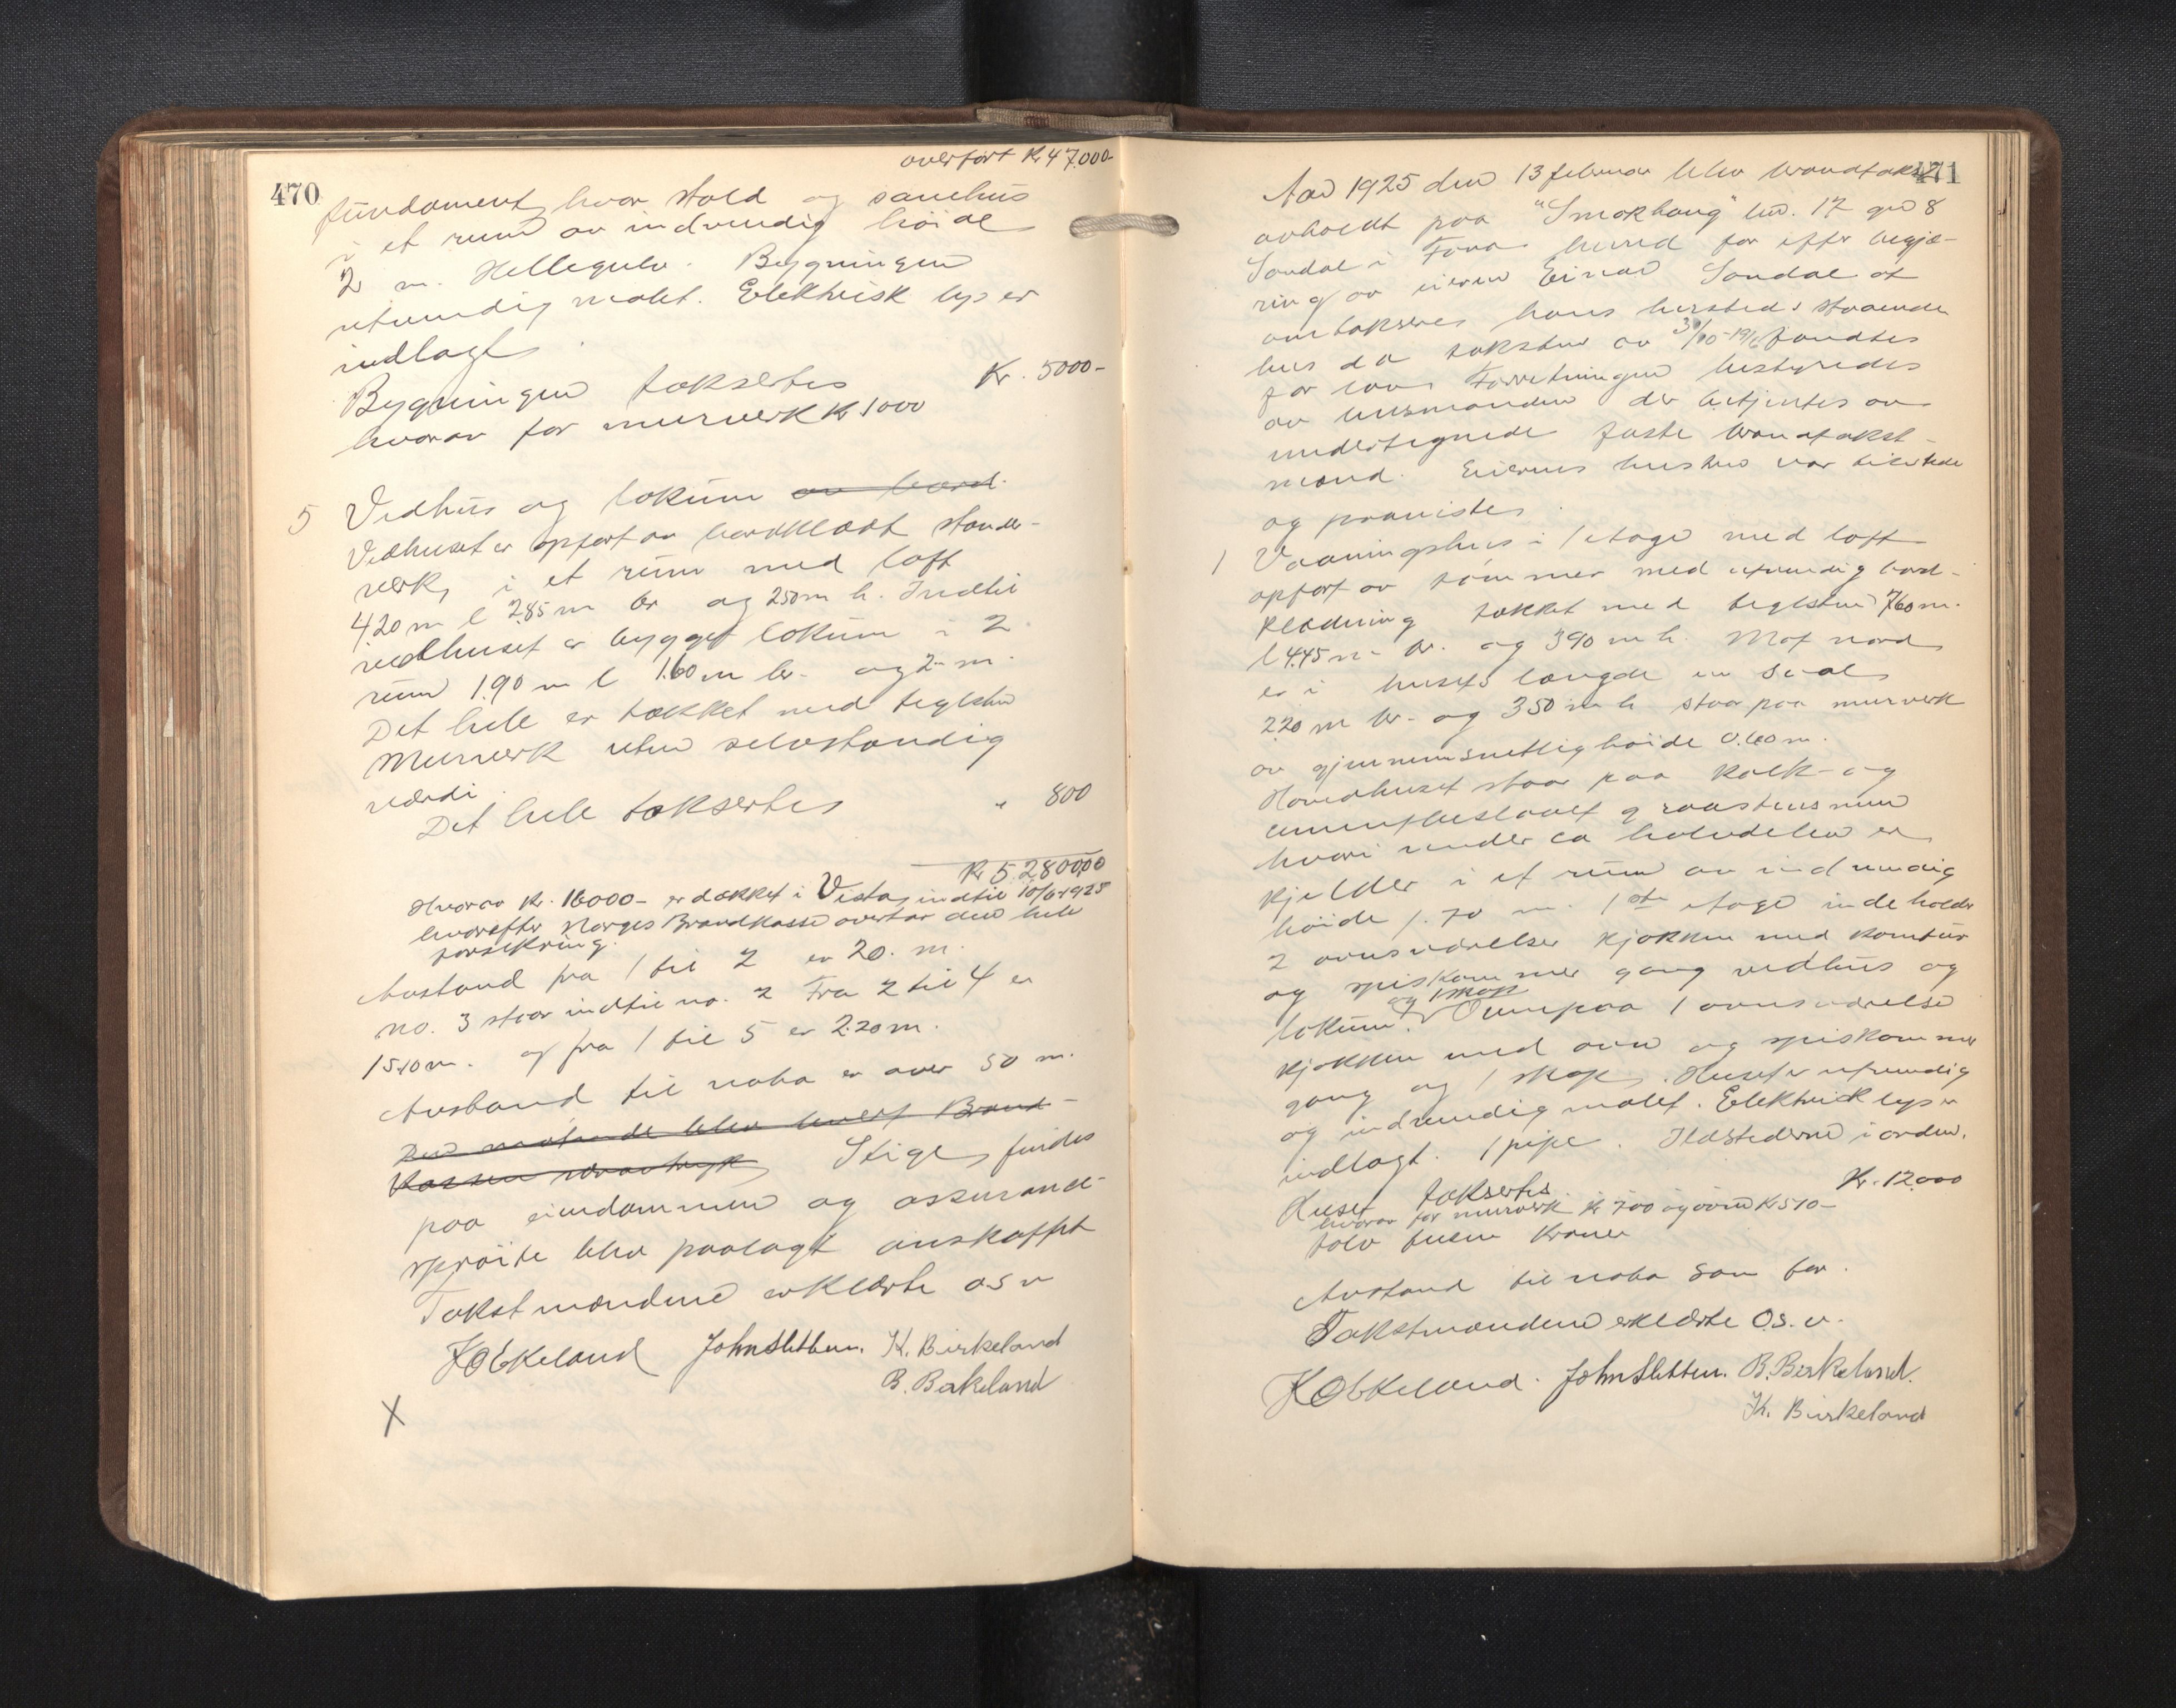 470
overført Kr 47.000-
fundament, hvor stald og sauehus
i et rum av indvendig høide
2 m. Hellegulv. Bygningen
utvendig malet. Elektrisk lys er
indlagt.
Bygningen taksertes Kr. 5000-
hvorav for murverk Kr 1000
5 Vedhus og lokum av bord.
Vedhuset er opført av bordklædt stender-
verk, i et rum med loft
4.20 m l 2.85 m br og 2.50 m h. Indtil
vedhuset er bygget lokum i 2
rum 1.90 m l 1.60 m br. og 2 m.
Det hele er tækket med teglsten
Murverk uten selvstændig
værdi.
Det hele taksertes " 800
Kr 52.800,00
Hvorav Kr. 16000- er dækket i Vesta, indtil 10/6-1925
hvorefter Norges Brandkasse overtar den hele
forsikring.
Avstand fra 1 til 2 er 20. m.
no. 3 staar indtil no. 2 Fra 2 til 4 er
15.10 m. og fra 1 til 5 er 2.20 m.
Avstand til nabo er over 50 m.
Stige findes
paa eiendommen og assurance-
sprøite blev paalagt anskaffet
Takstmændene erklærte o s v
K Obkeland John Sletten. K. Birkeland
B. Birkeland
X
471
Aar 1925 den 13 februar blev brandtakst
avholdt paa "Smørhaug" bno. 17 gno 8
Sandal i Fana herred for efter begjæ-
ring av eieren Einar Sandal at
omtaksere hans hersteds staaende
hus da taksten av 31/10-1916 fandtes
for lav. Forretningen bestyredes
av lensmanden der betjentes av
undertegnede faste brandtakst-
mænd. Eierens hustru var tilstede
og paaviste.
1 Vaaningshus i 1 etage med loft
opført av tømmer med utvendig bord-
klædning tækket med teglsten 7.60 m.
l 4.45 m. br. og 3.90 m h. Mot nord
er i husets længde en sval
2.20 m br. og 3.50 m h staar paa murverk
av gjennemsnitlig høide 0.60 m.
Hovedhuset staar paa kalk- og
cementbeslaaet graastensmur
hvori under ca halvdelen er
kjelder i et rum av indvendig
høide 1.70 m. 1ste etage indeholder
2 ovnsværelser kjøkken med komfur
og spiskammer gang vedhus og
lokum og 1 skap. Ovenpaa 1 ovnsværelse
kjøkken med ovn og spiskammer
gang og 1 skap. Huset er utvendig
og indvendig malet. Elektrisk lys er
indlagt. 1 pipe. Ildstederne i orden.
Huset taksertes Kr. 12.000
hvorav for murverk kr 700 og ovne Kr 510-
tolv tusen kroner
Avstand til nabo som før.
Takstmændene erklærte o. s. v.
K Obkeland. John Sletten. B. Birkeland.
K. Birkeland